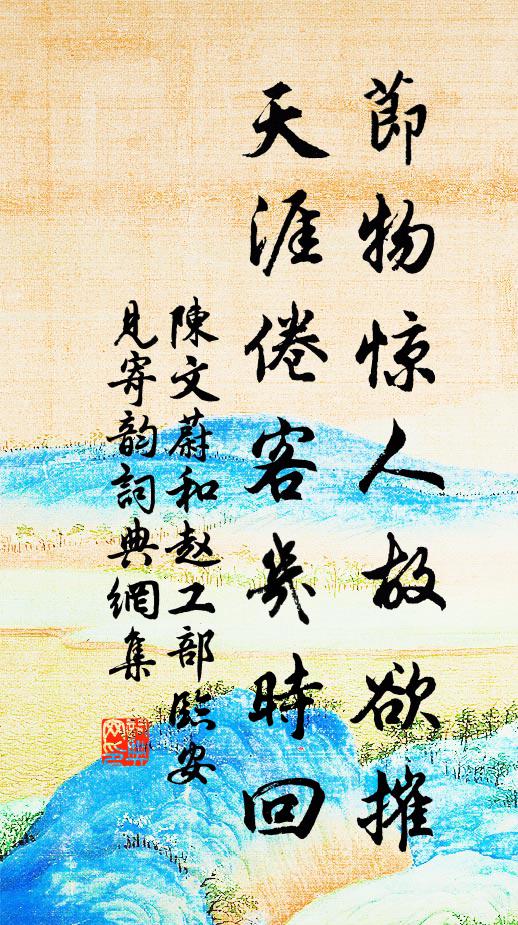 節物惊人故欲摧
天涯倦客幾時回
陳文蔚和赵工部臨安
見寄韵詞典網集